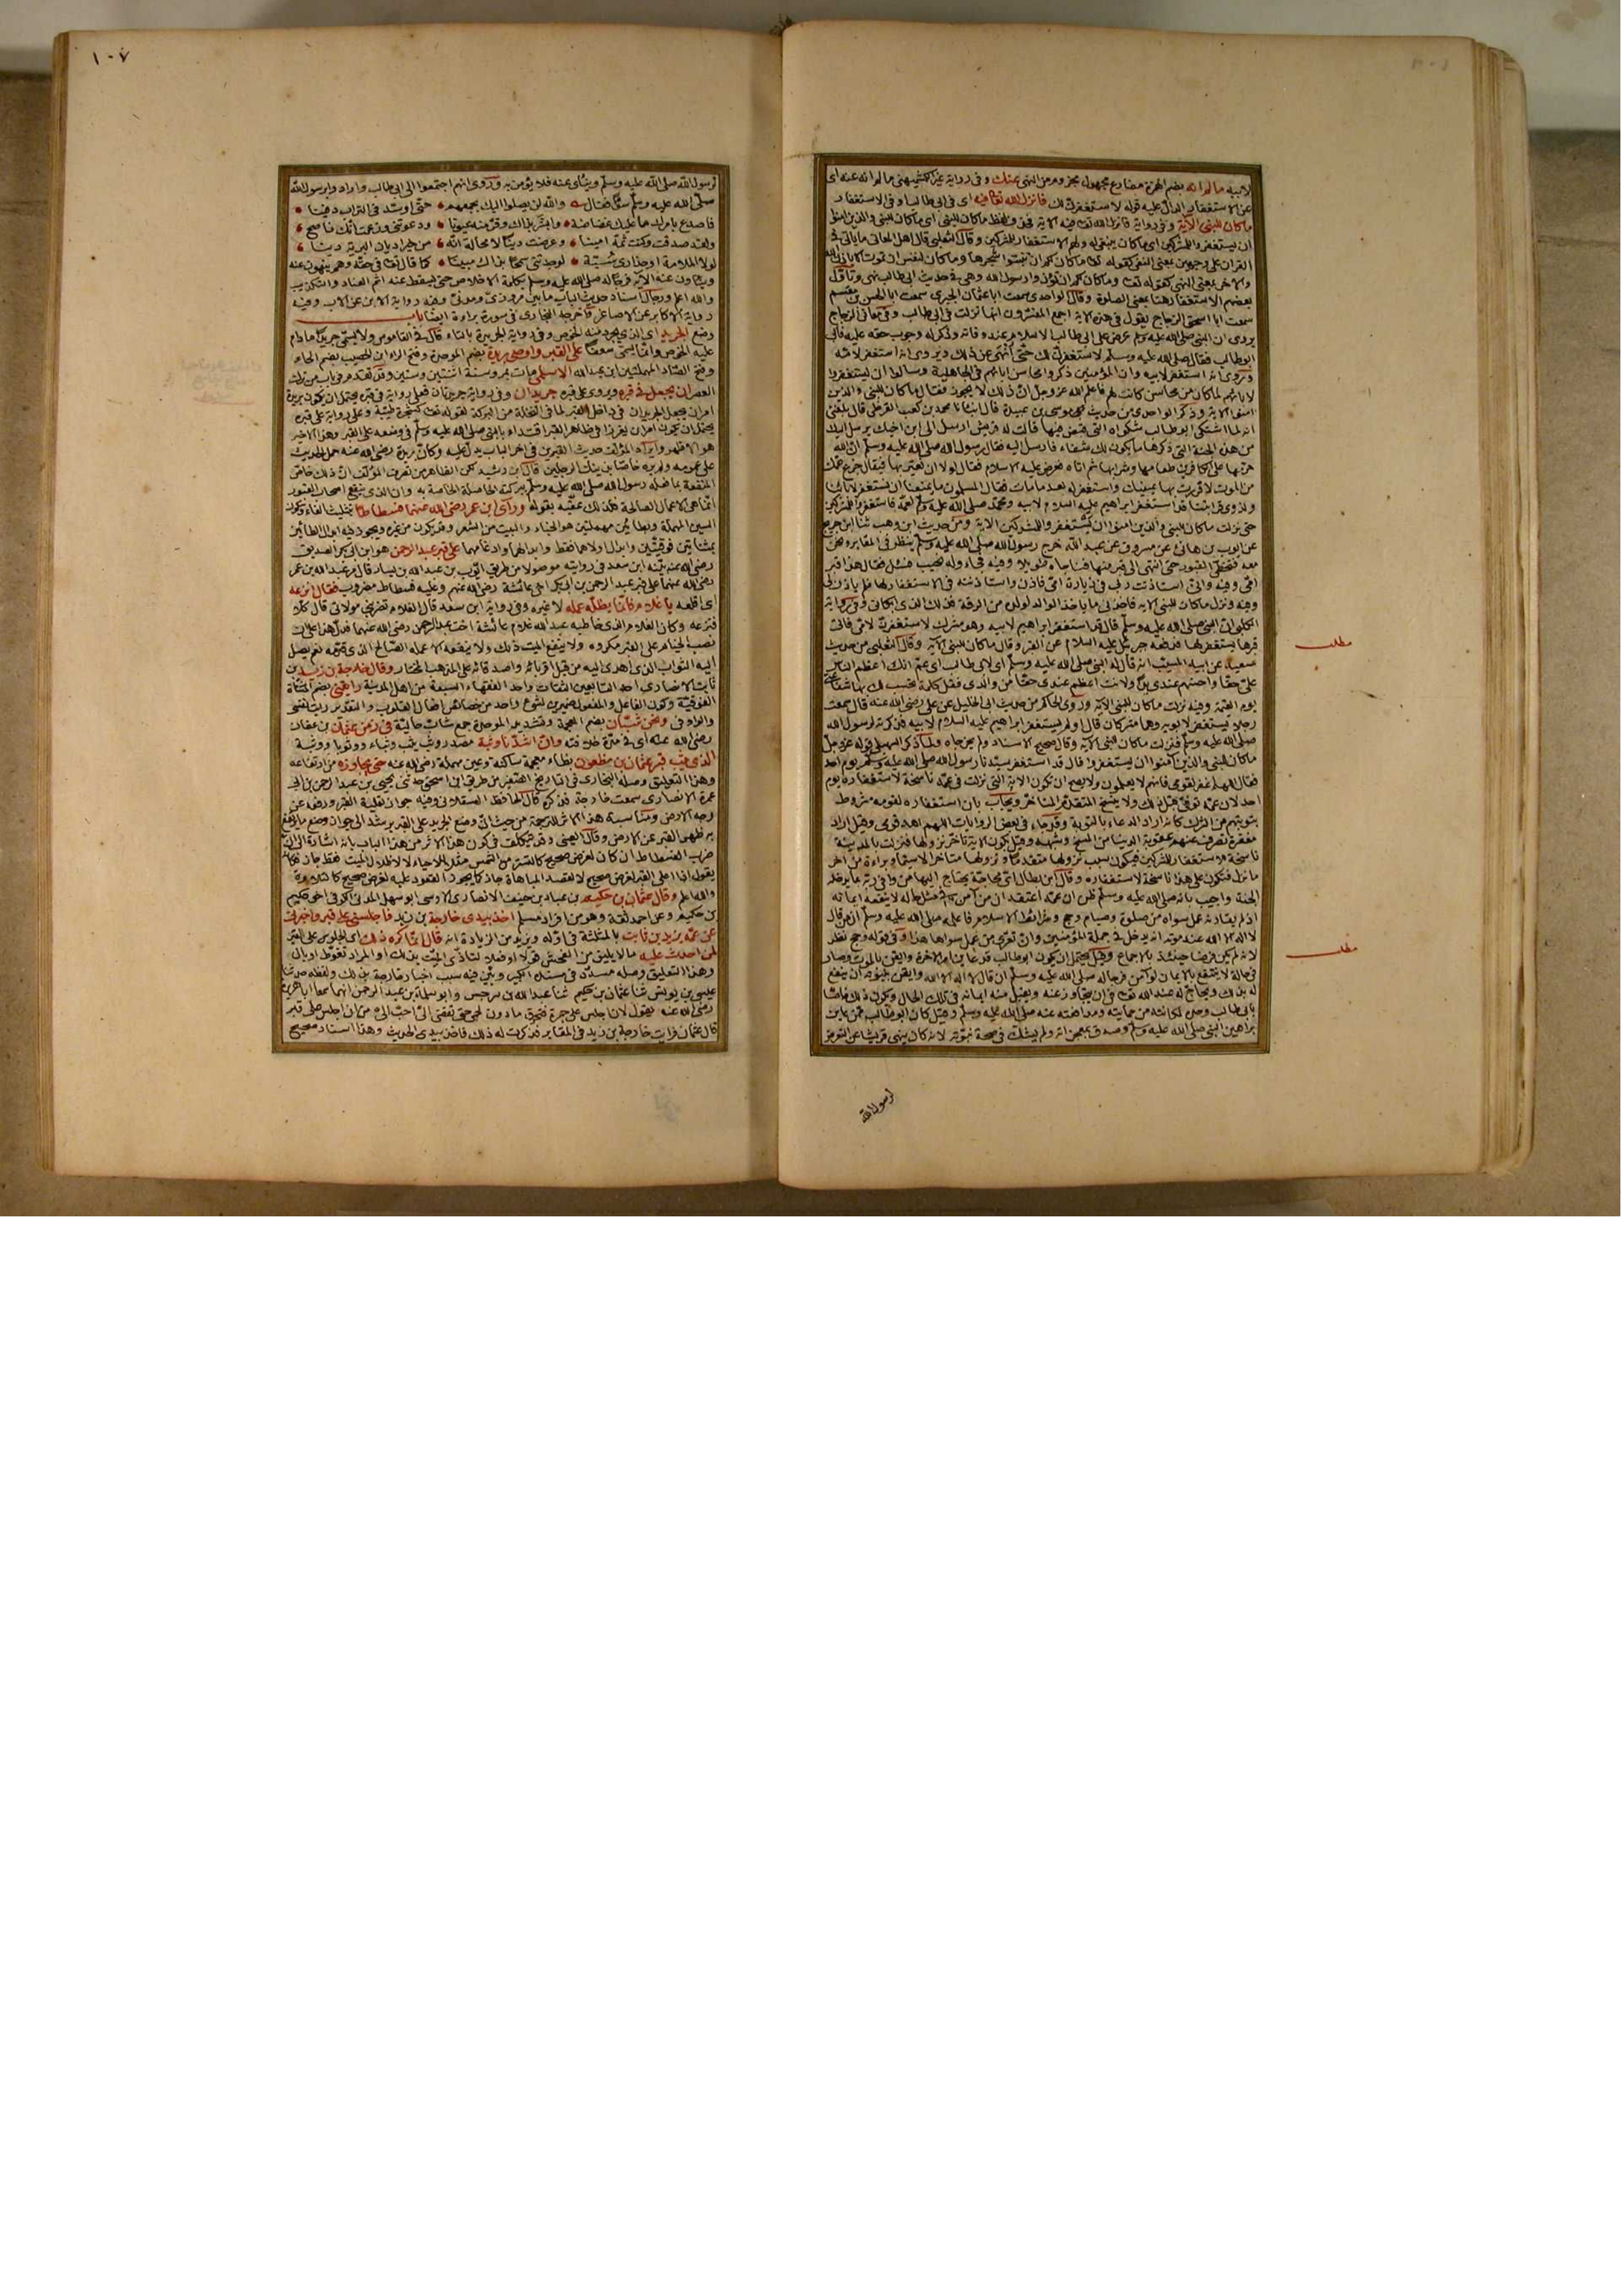 لابيه ما لم انه بضم الهمزة مضارع مجهول مجزوم من النهى عنك وفى رواية غير الكشميهنى ما لم انه عنه اى
عن الاستغفار الدال عليه قوله لاستغفرن لك فانزل الله تعالى فيه اى فى ابى طالب او فى الاستغفار
ما كان للنبى الآية وفى رواية فانزل الله تعالى فيه الآية ما كان للنبى اى ما كان للنبى والذين امنوا
ان يستغفروا للمشركين اى ما كان ينبغى له ولهم الاستغفار للمشركين وقال الثعلبى قال اهل المعانى ما ياتى فى
القران على وجهين بمعنى النفى كقوله تعالى ما كان لكم ان تنبتوا شجرها وما كان لنفس ان تموت الا باذن الله
والاخر بمعنى النهى كقوله تعالى وما كان لكم ان تؤذوا رسول الله وهى فى حديث ابى طالب نهى وتأول
بعضهم الاستغفار هنا بمعنى الصلوة وقال الواحدى سمعت ابا عثمان الحيرى سمعت ابا الحسن بن مقسم
سمعت ابا اسحق الزجاج يقول فى هذه الآية اجمع المفسرون انها نزلت فى ابى طالب وفى معانى الزجاج
يروى ان النبى صلى الله عليه وسلم عرض على ابى طالب الاسلام عند وفاته وذكر له وجوب حقه عليه فابى
ابو طالب فقال صلى الله عليه وسلم لاستغفرن لك حتى أنهى عن ذلك ويروى انه استغفر لامه
ويروى انه استغفر لابيه وان المؤمنين ذكروا محاسن ابائهم فى الجاهلية وسالوا ان يستغفروا
لابائهم لما كان من محاسن كانت لهم فاعلم الله عز وجل ان ذلك لا يجوز فقال ما كان للنبى والذين
امنوا الآية وذكر الواحدى من حديث موسى بن عبيدة قال انبأنا محمد بن كعب القرظى قال بلغنى
انه لما اشتكى ابو طالب شكواه التى قبض فيها قالت له قريش ارسل الى ابن اخيك يرسل اليك
من هذه الجنة التى ذكرها ما يكون لك شفاء فارسل اليه فقال رسول الله صلى الله عليه وسلم ان الله
حرمها على الكافرين طعامها وشرابها ثم اتاه فعرض عليه الاسلام فقال لولا ان تعير بها فيقال جزع عمك
من الموت لاقررت بها عينيك واستغفر له بعد ما مات فقال المسلمون ما يمنعنا ان نستغفر لابائنا
ولذوى قرابتنا قد استغفر ابراهيم عليه السلام لابيه ومحمد صلى الله عليه وسلم لعمه فاستغفروا للمشركين
حتى نزلت ما كان للنبى والذين امنوا ان يستغفروا للمشركين الآية ومن حديث ابن وهب ثنا ابن جريج
عن ايوب بن هانئ عن مسروق عن عبد الله خرج رسول الله صلى الله عليه وسلم ينظر فى المقابر ونحن
معه فتخطى القبور حتى انتهى الى قبر منها فناجاه طويلا وفيه فجاء وله نحيب فسئل فقال هذا قبر
امى وفيه وانى استاذنت ربى فى زيارة امى فاذن واستاذنته فى الاستغفار لها فلم ياذن لى
وفيه ونزل ما كان للنبى الآية فاخذنى ما ياخذ الولد لوالده من الرقة فذلك الذى ابكانى وفى رواية
الكلبى ان النبى صلى الله عليه وسلم قال قد استغفر ابراهيم لابيه وهو مشرك لاستغفرن لامى فاتى
قبرها يستغفر لها فدفعه جبرئيل عليه السلام عن القبر وقال ما كان للنبى الآية وقال الثعلبى من حديث
سعيد عن ابيه المسيب انه قال له النبى صلى الله عليه وسلم اى لابى طالب اى عم انك اعظم الناس
على حقا واحسنهم عندى يدا ولانت اعظم عندى حقا من والدى فقل كلمة تجب لك بها شفاعتى
يوم القيمة وفيه نزلت ما كان للنبى الآية وروى الحاكم من حديث ابى الخليل عن على رضى الله عنه قال سمعت
رجلا يستغفر لابويه وهما مشركان قال او لم يستغفر ابراهيم عليه السلام لابيه فذكرته لرسول الله
صلى الله عليه وسلم فنزلت ما كان للنبى الآية وقال صحيح الاسناد ولم يخرجاه ولما ذكر السهيلى قوله عز وجل
ما كان للنبى والذين آمنوا ان يستغفروا قال قد استغفر سيدنا رسول الله صلى الله عليه وسلم يوم احد
فقال اللهم اغفر لقومى فانهم لا يعلمون ولا يصح ان تكون الاية التى نزلت فى عمه ناسخة لاستغفاره يوم
احد لان عمه توفى قبل ذلك ولا ينسخ المتقدم المتاخر ويجاب بان استغفاره لقومه مشروط
بتوبتهم من الشرك كانه اراد الدعاء بالتوبة وقد جاء فى بعض الروايات اللهم اهد قومى وقيل اراد
مغفرة تصرف عنهم عقوبة الدنيا من المسخ وشبهه وقيل تكون الآية تأخر نزولها فنزلت بالمدينة
ناسخة للاستغفار للمشركين فيكون سبب نزولها متقدما ونزولها متاخرا لا سيما وبراءة من آخر
ما نزل فتكون على هذا ناسخة لاستغفاره وقال ابن بطال
الجنة واجيب بانه صلى الله عليه وسلم ظن ان عمه اعتقد ان من آمن فى مثل حاله لا ينفعه ايمانه
اذ لم يقارنه عمل سواه من صلوة وصيام وحج وشرائط الاسلام فاعلمه صلى الله عليه وسلم ان من قال
لا اله الا الله عند موته انه يدخل فى جملة المؤمنين وان تعرى من عمل سواها
لانه لم يكن فرضا حينئذ بالاجماع وقيل يحتمل ان يكون ابو طالب قد عاين امر الاخرة وايقن بالموت وصار
فى حالة لا ينتفع بالايمان لو آمن فرجا له صلى الله عليه وسلم ان قال لا اله الا الله وايقن بنبوته ان ينفع
له بذلك ويحاج له عند الله تعالى فى ان يتجاوز عنه ويقبل منه ايمانه فى تلك الحال ويكون ذلك خاصا
بابى طالب وحده لمكانته من حمايته ومدافعته عنه صلى الله عليه وسلم وقيل كان ابو طالب ممن عاين
براهين النبى صلى الله عليه وسلم وصدق بمعجزاته ولم يشك فى صحة نبوته لانه كان ينهى قريشا عن التعرض
لرسول الله
مطلب
مطلب
١٠٧
لرسول الله صلى الله عليه وسلم وينأى عنه فلا يؤمن به وروى انهم اجتمعوا الى ابى طالب وارادوا برسول الله
صلى الله عليه وسلم سوءا فقال والله لن يصلوا اليك بجمعهم حتى اوسد فى التراب دفينا
فاصدع بامرك ما عليك غضاضة وابشر بذاك وقر منه عيونا ودعوتنى وزعمت انك ناصح
ولقد صدقت وكنت ثمة امينا وعرضت دينا لا محالة انه من خير اديان البرية دينا
لولا الملامة او حذارى سبة لوجدتنى سمحا بذاك مبينا كما قال تعالى فى حقه وهم ينهون عنه
وينأون عنه الآية فرجا له صلى الله عليه وسلم بكلمة الاخلاص حتى يسقط عنه اثم العناد والتكذيب
والله اعلم ورجال اسناد حديث الباب ما بين مروزى ومدنى وفيه رواية الابن عن الاب وفيه
رواية الاكابر عن الاصاغر واخرجه البخارى فى سورة براءة ايضا باب
وضع الجريد اى الذى يجرد عنه الخوص وفى رواية الجريدة بالتاء قال فى القاموس ولا يسمى جريدا ما دام
عليه الخوص وانما يسمى سعفا على القبر واوصى بريدة بضم الموحدة وفتح الراء ابن الحصيب بضم الحاء
وفتح الصاد المهملتين ابن عبد الله الاسلمى مات بمرو سنة اثنتين وستين وقد تقدم فى باب من ترك
العصر ان يجعل فى قبره ويروى على قبره جريدان وفى رواية جريدتان فعلى رواية فى قبره يحتمل ان يكون بريدة
امر ان يجعل الجريدان فى داخل القبر لما فى النخلة من البركة لقوله تعالى كشجرة طيبة وعلى رواية على قبره
يحتمل ان يكون امر ان يغرزا فى ظاهر القبر اقتداء بالنبى صلى الله عليه وسلم فى وضعه على القبر وهذا الاخير
هو الاظهر وايراد المؤلف حديث القبرين فى اخر الباب يدل عليه وكأن بريدة رضى الله عنه حمل الحديث
على عمومه ولم يره خاصا بذينك الرجلين قال ابن رشيد لكن الظاهر من تصرف المؤلف ان ذلك خاص
المنفعة بما فعله رسول الله صلى الله عليه وسلم ببركته الحاصلة الخاصة به وان الذى ينفع اصحاب القبور
انما هى الاعمال الصالحة فلذلك عقبه بقوله ورأى ابن عمر رضى الله عنهما فسطاطا بتثليث الفاء وسكون
السين المهملة وبطائين مهملتين هو الخباء والبيت من الشعر وقد يكون من غيره ويجوز فيه ابدال الطائين
بمثناتين فوقيتين وابدال اولاهما فقط وابدالهما وادغامهما على قبر عبد الرحمن هو ابن ابى بكر الصديق
رضى الله عنه بينه ابن سعد فى روايته موصولا من طريق ايوب بن عبد الله بن يسار قال مر عبد الله بن عمر
رضى الله عنهما على قبر عبد الرحمن بن ابى بكر اخى عائشة رضى الله عنهم وعليه فسطاط مضروب فقال انزعه
اى اقلعه يا غلام فانما يظله عمله لا غيره وفى رواية ابن سعد قال الغلام تضربنى مولاتى قال كلا
فنزعه وكأن الغلام الذى خاطبه عبد الله غلام عائشة اخت عبد الرحمن رضى الله عنهما فدل هذا على ان
نصب الخيام على القبر مكروه ولا ينفع الميت ذلك ولا ينفعه الا عمله الصالح الذى قدمه نعم يصل
اليه الثواب الذى اهدى اليه من قبل اقربائه واصدقائه على المذهب المختار وقال خارجة بن زيد بن
ثابت الانصارى احد التابعين الثقات واحد الفقهاء السبعة من اهل المدينة رايتنى بضم المثناة
الفوقية وكون الفاعل والمفعول ضميرين لشىء واحد من خصائص افعال القلوب والتقدير رايت نفسى
والواو فى ونحن شبان بضم المعجمة وتشديد الموحدة جمع شاب حالية فى زمن عثمان بن عفان
رضى الله عنه اى فى مدة خلافته وان اشدنا وثبة مصدر وثب يثب وثبا ووثوبا ووثبة
الذى يثب قبر عثمان بن مظعون بظاء معجمة ساكنة وعين مهملة رضى الله عنه حتى يجاوزه من ارتفاعه
وهذا التعليق وصله البخارى فى التاريخ الصغير من طريق ابن اسحق حدثنى يحيى بن عبد الرحمن بن ابى
عمرة الانصارى سمعت خارجة فذكره قال الحافظ العسقلانى وفيه جواز تعلية القبر ورفعه عن
وجه الارض ومناسبة هذا الاثر للترجمة من حيث ان وضع الجريد على القبر يرشد الى جواز وضع ما يرتفع
به ظهر القبر عن الارض وقال العينى
ضرب الفسطاط ان كان لغرض صحيح كالتستر من الشمس مثلا للاحياء لا لاظلال الميت فقط جاز فكأنه
يقول اذا اعلى القبر لغرض صحيح لا لقصد المباهاة جاز كما يجوز القعود عليه لغرض صحيح
والله اعلم وقال عثمان بن حكيم بن عباد بن حنيف الانصارى الاوسى ابو سهل المدنى الكوفى اخو حكيم
بن حكيم وعن احمد ثقة وهو من افراد مسلم اخذ بيدى خارجة بن زيد فاجلسنى على قبر واخبرنى
عن عمه يزيد بن ثابت بالمثلثة فى اوله ويزيد من الزيادة انه قال انما كره ذلك اى الجلوس على القبر
لمن احدث عليه ما لا يليق من الفحش قولا او فعلا لتأذى الميت بذلك او المراد تغوط او بال
وهذا التعليق وصله مسدد فى مسنده الكبير وبين فيه سبب اخبار خارجة بذلك ولفظه حدثنا
عيسى بن يونس ثنا عثمان بن حكيم ثنا عبد الله بن سرجس وابو سلمة بن عبد الرحمن انهما سمعا ابا هريرة
رضى الله عنه يقول لان اجلس على جمرة فتحرق ما دون لحمى حتى تفضى الى احب الى من ان اجلس على قبر
قال عثمان فرايت خارجة بن زيد فى المقابر فذكرت له ذلك فاخذ بيدى الحديث وهذا اسناد صحيح